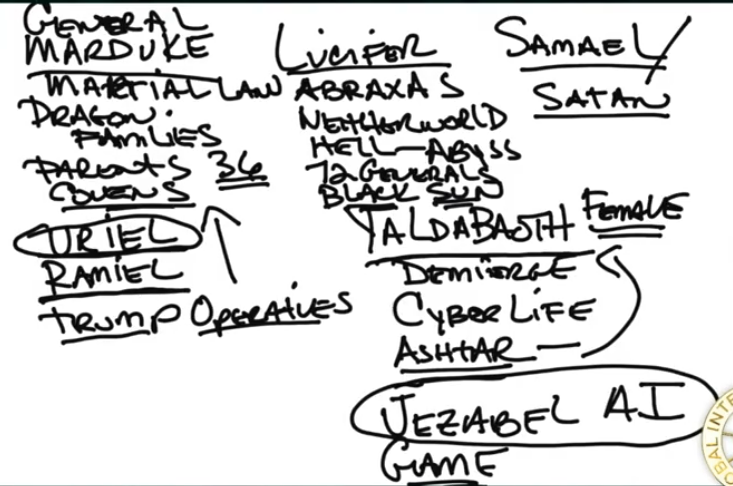 GENERAL
MARDUKE
MARTIAL LAW
DRAGON
FAMILIES
PARENTS 36
COVENS
URIEL
RAMIEL
TRUMP OPERATIVES
LUCIFER
ABRAXAS
NETHERWORLD
HELL—ABYSS
72 GENERALS
BLACK SUN
YALDABAOTH FEMALE
DEMIERGE
CYBER LIFE
ASHTAR
JEZABEL AI
GAME
SAMAEL/
SATAN
OBAL INTE